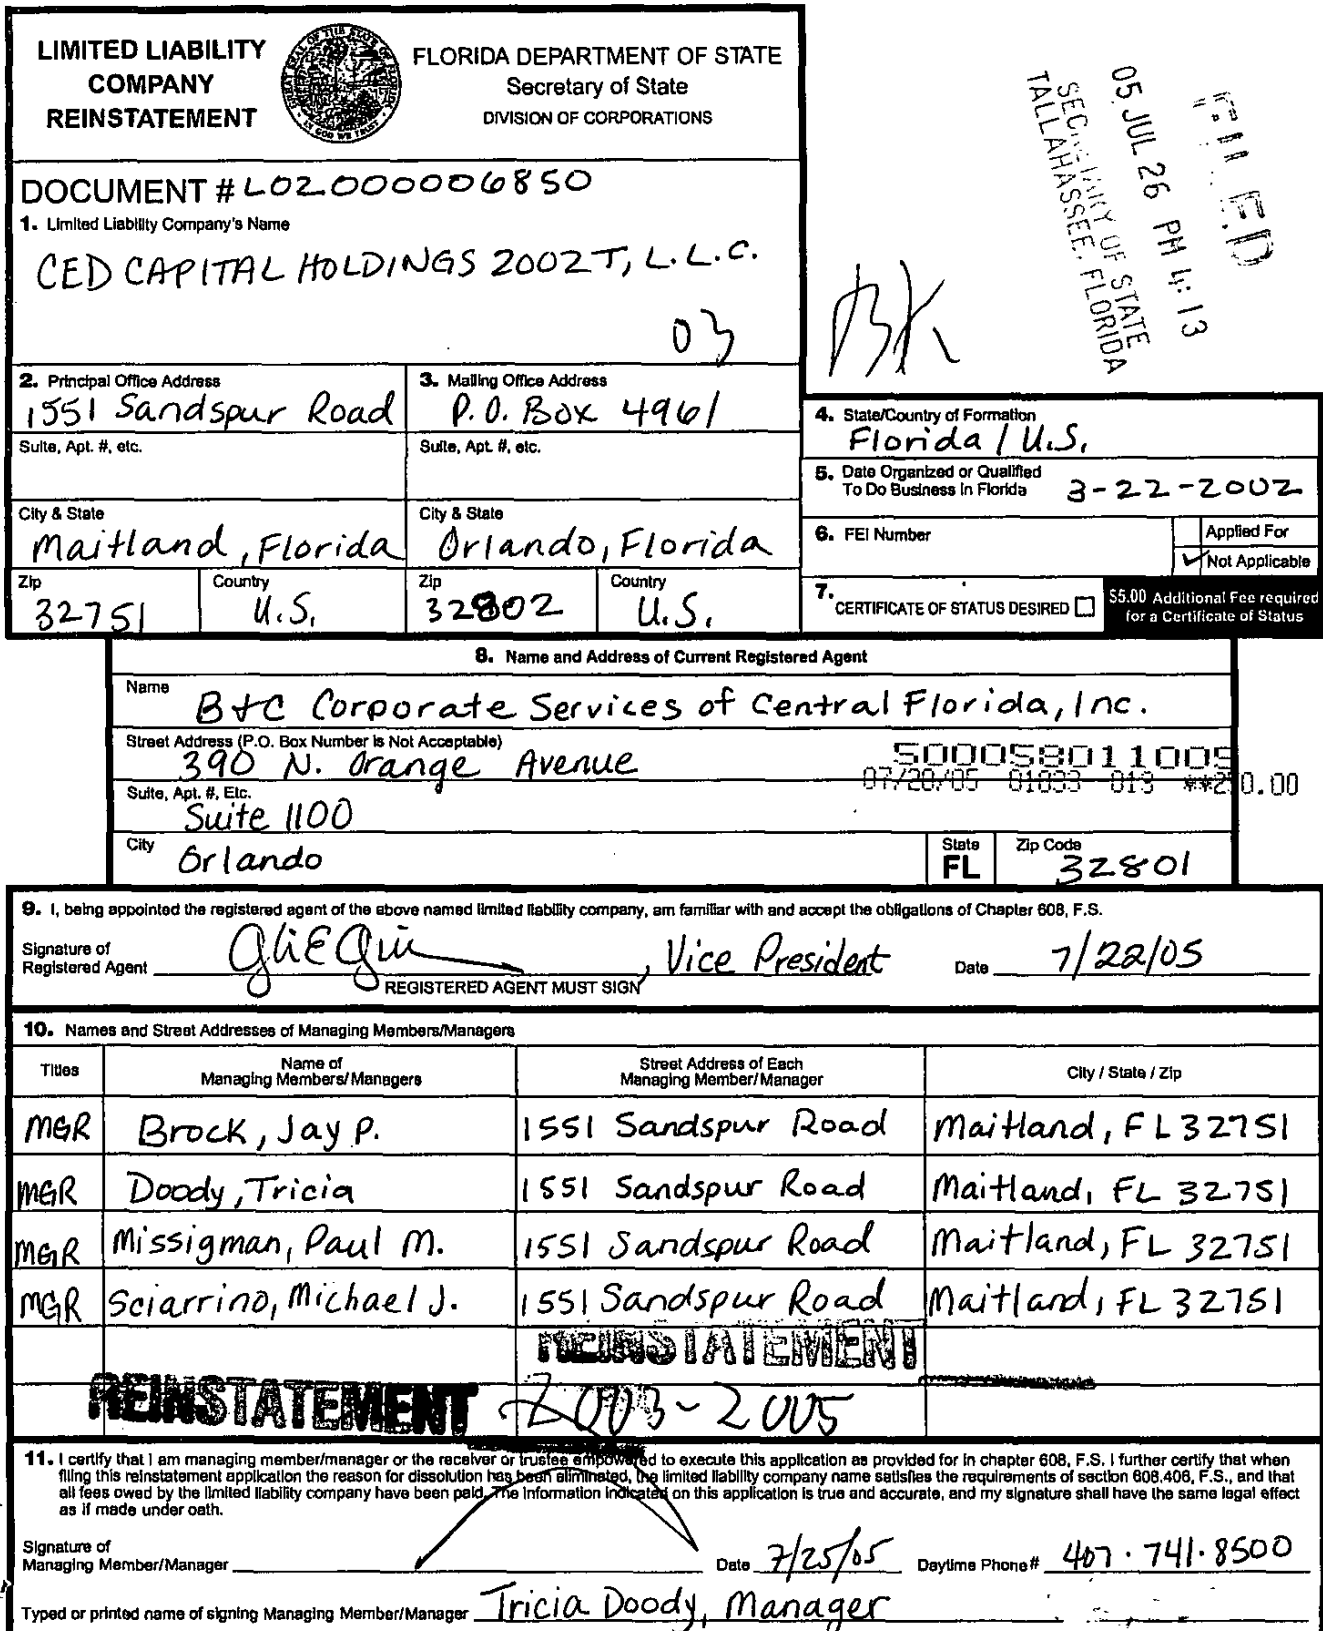 LIMITED LIABILITY
COMPANY
REINSTATEMENT
FLORIDA DEPARTMENT OF STATE
Secretary of State
DIVISION OF CORPORATIONS
FILED
05 JUL 26 PM 4:13
SECRETARY OF STATE
TALLAHASSEE, FLORIDA
DOCUMENT # L02000006850
1. Limited Liability Company's Name
CED CAPITAL HOLDINGS 2002T, L.L.C.
03
BK
2. Principal Office Address
1551 Sandspur Road
3. Mailing Office Address
P.O. Box 4961
Suite, Apt. #, etc.
Suite, Apt. #, etc.
City & State
Maitland, Florida
City & State
Orlando, Florida
Zip
32751
Country
U.S.
Zip
32802
Country
U.S.
4. State/Country of Formation
Florida / U.S.
5. Date Organized or Qualified
To Do Business in Florida 3-22-2002
6. FEI Number
Applied For
Not Applicable
7. CERTIFICATE OF STATUS DESIRED
$5.00 Additional Fee required
for a Certificate of Status
8. Name and Address of Current Registered Agent
Name
B+C Corporate Services of Central Florida, Inc.
Street Address (P.O. Box Number is Not Acceptable)
390 N. Orange Avenue
500058011005
07/20/05 01033 013 **2 0.00
Suite, Apt. #, Etc.
Suite 1100
City
Orlando
State
FL
Zip Code
32801
9. I, being appointed the registered agent of the above named limited liability company, am familiar with and accept the obligations of Chapter 608, F.S.
Signature of
Registered Agent , Vice President Date 7/22/05
REGISTERED AGENT MUST SIGN
10. Names and Street Addresses of Managing Members/Managers
Titles
Name of
Managing Members/Managers
Street Address of Each
Managing Member/Manager
City / State / Zip
MGR Brock, Jay P. 1551 Sandspur Road Maitland, FL 32751
MGR Doody, Tricia 1551 Sandspur Road Maitland, FL 32751
MGR Missigman, Paul M. 1551 Sandspur Road Maitland, FL 32751
MGR Sciarrino, Michael J. 1551 Sandspur Road Maitland, FL 32751
REINSTATEMENT
REINSTATEMENT 2003-2005
11. I certify that I am managing member/manager or the receiver or trustee empowered to execute this application as provided for in chapter 608, F.S. I further certify that when
filing this reinstatement application the reason for dissolution has been eliminated, the limited liability company name satisfies the requirements of section 608.406, F.S., and that
all fees owed by the limited liability company have been paid. The information indicated on this application is true and accurate, and my signature shall have the same legal effect
as if made under oath.
Signature of
Managing Member/Manager Date 7/25/05 Daytime Phone # 407.741.8500
Typed or printed name of signing Managing Member/Manager Tricia Doody, Manager